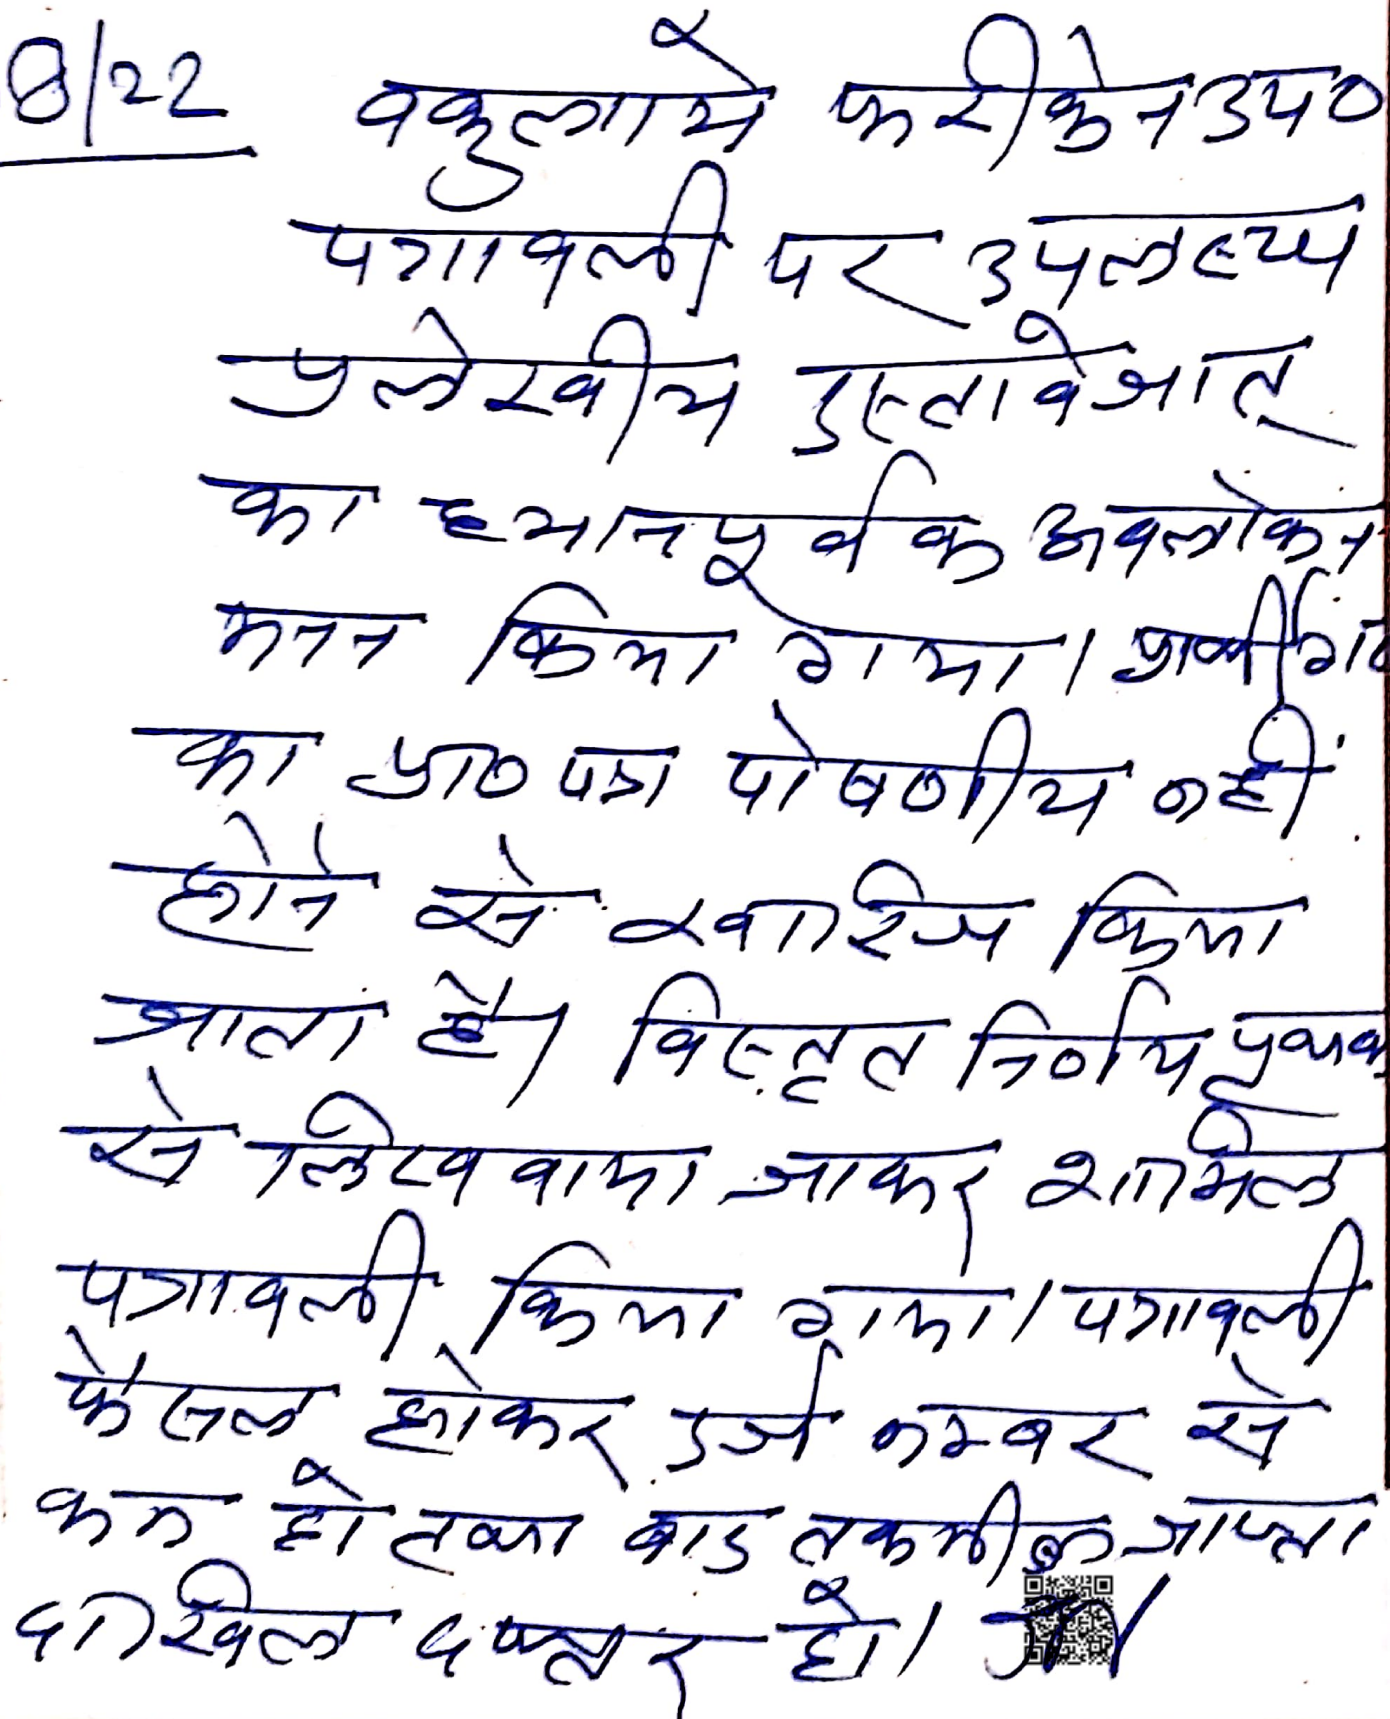 8/22 वकुलाये फरीकेन उप०
पत्रावली पर उपलब्ध
प्रलेखीय दस्तावेजात
का ध्यानपूर्वक अवलोकन
मनन किया गया। प्रार्थीग
का प्रा० पत्र पोषणीय नहीं
होने से खारिज किया
जाता है। विस्तृत निर्णय पृथक
से लिखवाया जाकर शामिल
पत्रावली किया गया। पत्रावली
फैसल होकर दर्ज नम्बर से
कम हो तथा बाद तकमील जाप्ता
दाखिल दफ्तर हो।